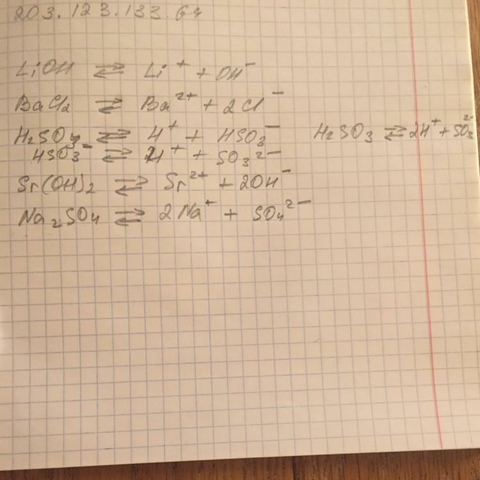 203.123.133.64
LiOH ⇄ Li⁺ + OH⁻
BaCl₂ ⇄ Ba²⁺ + 2Cl⁻
H₂SO₃ ⇄ H⁺ + HSO₃⁻ H₂SO₃ ⇄ 2H⁺ + SO₃²⁻
HSO₃⁻ ⇄ H⁺ + SO₃²⁻
Sr(OH)₂ ⇄ Sr²⁺ + 2OH⁻
Na₂SO₄ ⇄ 2Na⁺ + SO₄²⁻